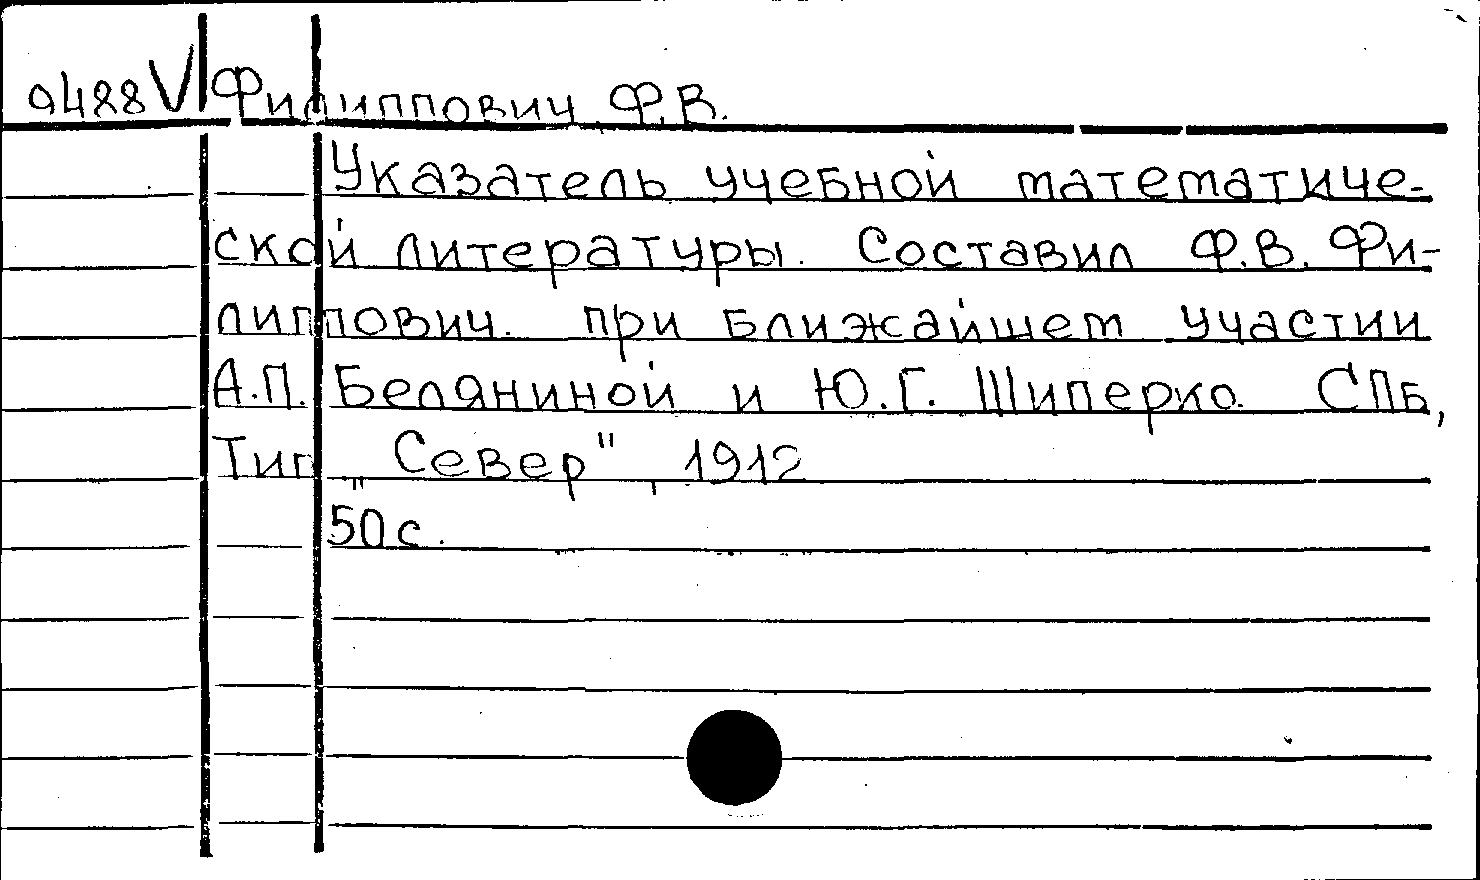 9488 V Филиппович Ф.В.
Указатель учебной математиче-
ской литературы. Составил Ф.В. Фи-
липпович. при ближайшем участии
А.П. Беляниной и Ю.Г. Шиперко. СПб,
Тип. „Север", 1912
50 с.